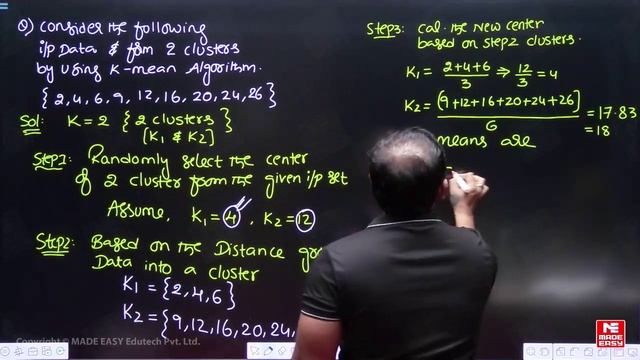 Q) Consider the following
i/p Data & form 2 clusters
by using K-mean Algorithm.
{2,4,6,9, 12,16, 20,24,26}
Sol: K=2 {2 clusters}
[K1 & K2]
Step1: Randomly select the center
of 2 cluster from the given i/p set
Assume, K1 = 4, K2 = 12
Step2: Based on the Distance
Data into a cluster
K1 = {2,4,6}
K2 = {9,12,16,20,24,
Step3: Cal. the New center
based on step2 clusters.
K1 = 2+4+6/3 ⇒ 12/3 = 4
K2 = [9+12+16+20+24+26]/6 = 17.83
= 18
means are
Copyright © MADE EASY Edutech Pvt. Ltd.
ME
MADE
EASY